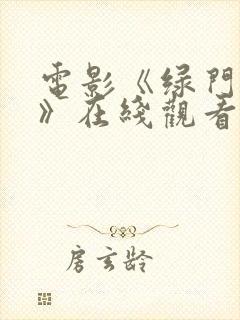 電影《绿門
》在綫觀看
房玄龄